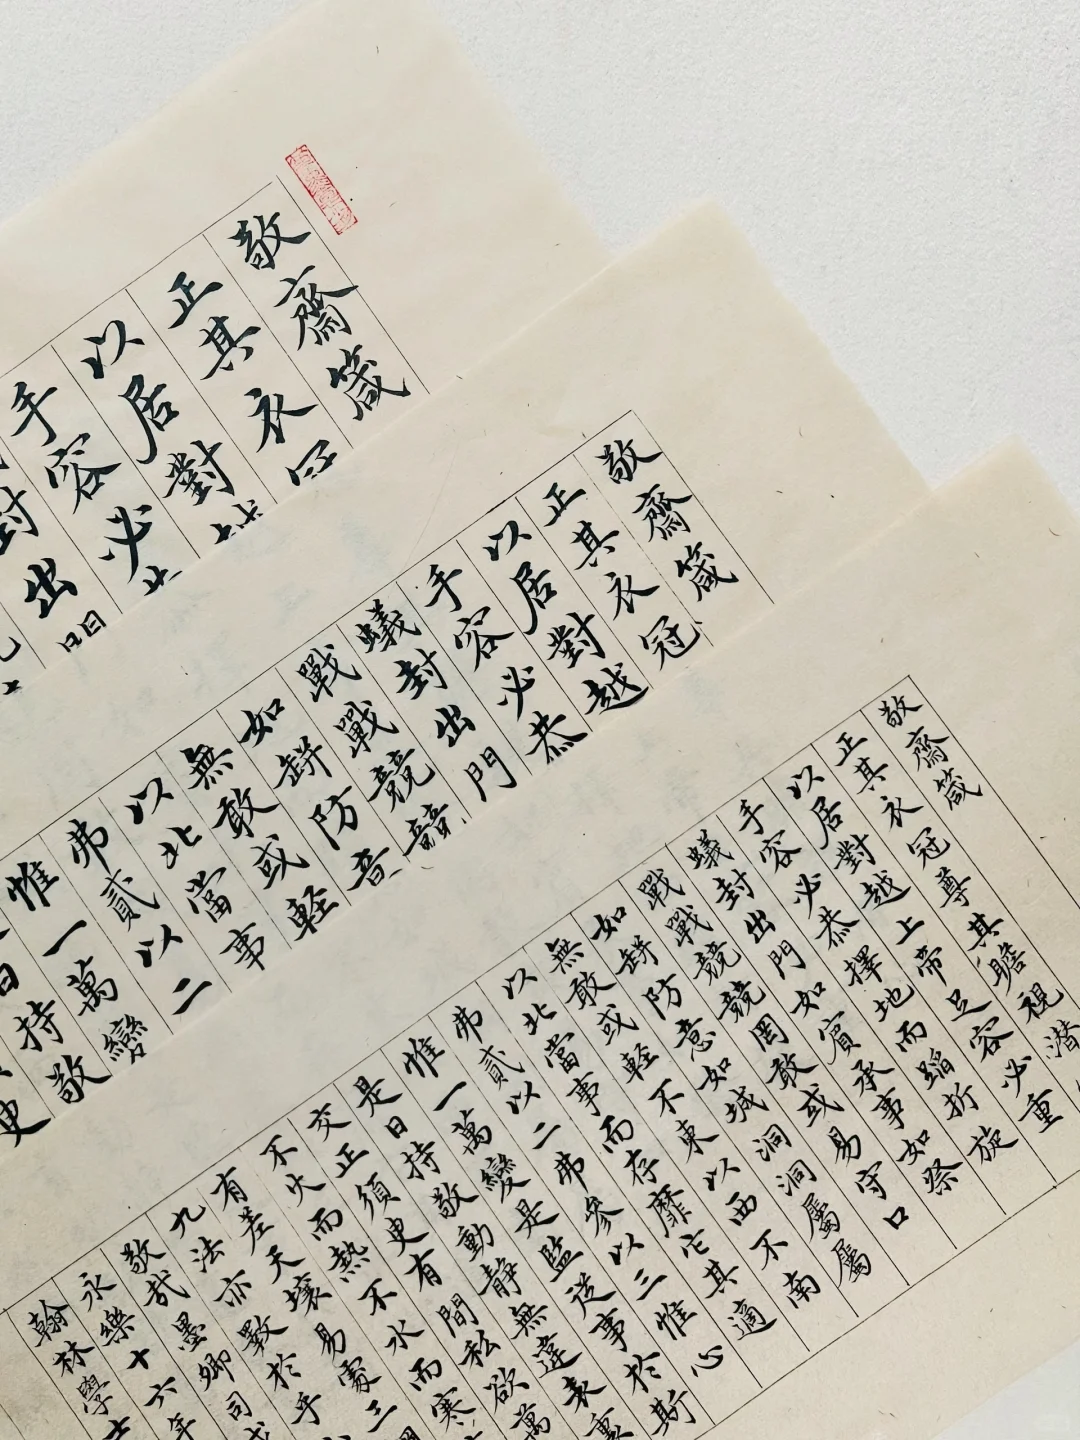 敬齋箴
正其衣
以居對
手容必
封出
敬齋箴
正其衣冠
以居對越
手容必恭
蟻封出門
戰戰競競
如缾防
無敢或輕
以北當事
弗貳以二
惟一萬變
日持敬
臾
敬齋箴
正其衣冠尊其瞻視潛
以居對越上帝足容必重
手容必恭擇地而蹈折旋
蟻封出門如賓承事如祭
戰戰競競罔敢或易守口
如缾防意如城洞洞屬屬
無敢或輕不東以西不南
以北當事而存靡它其適
弗貳以二弗參以三惟心
惟一萬變是監從事於斯
是日持敬動靜無違表裏
交正須臾有間私欲萬
不火而熱不水而寒
有差天壤易處三
九法亦斁於乎
敬哉墨卿司
永樂十六年
翰林學士